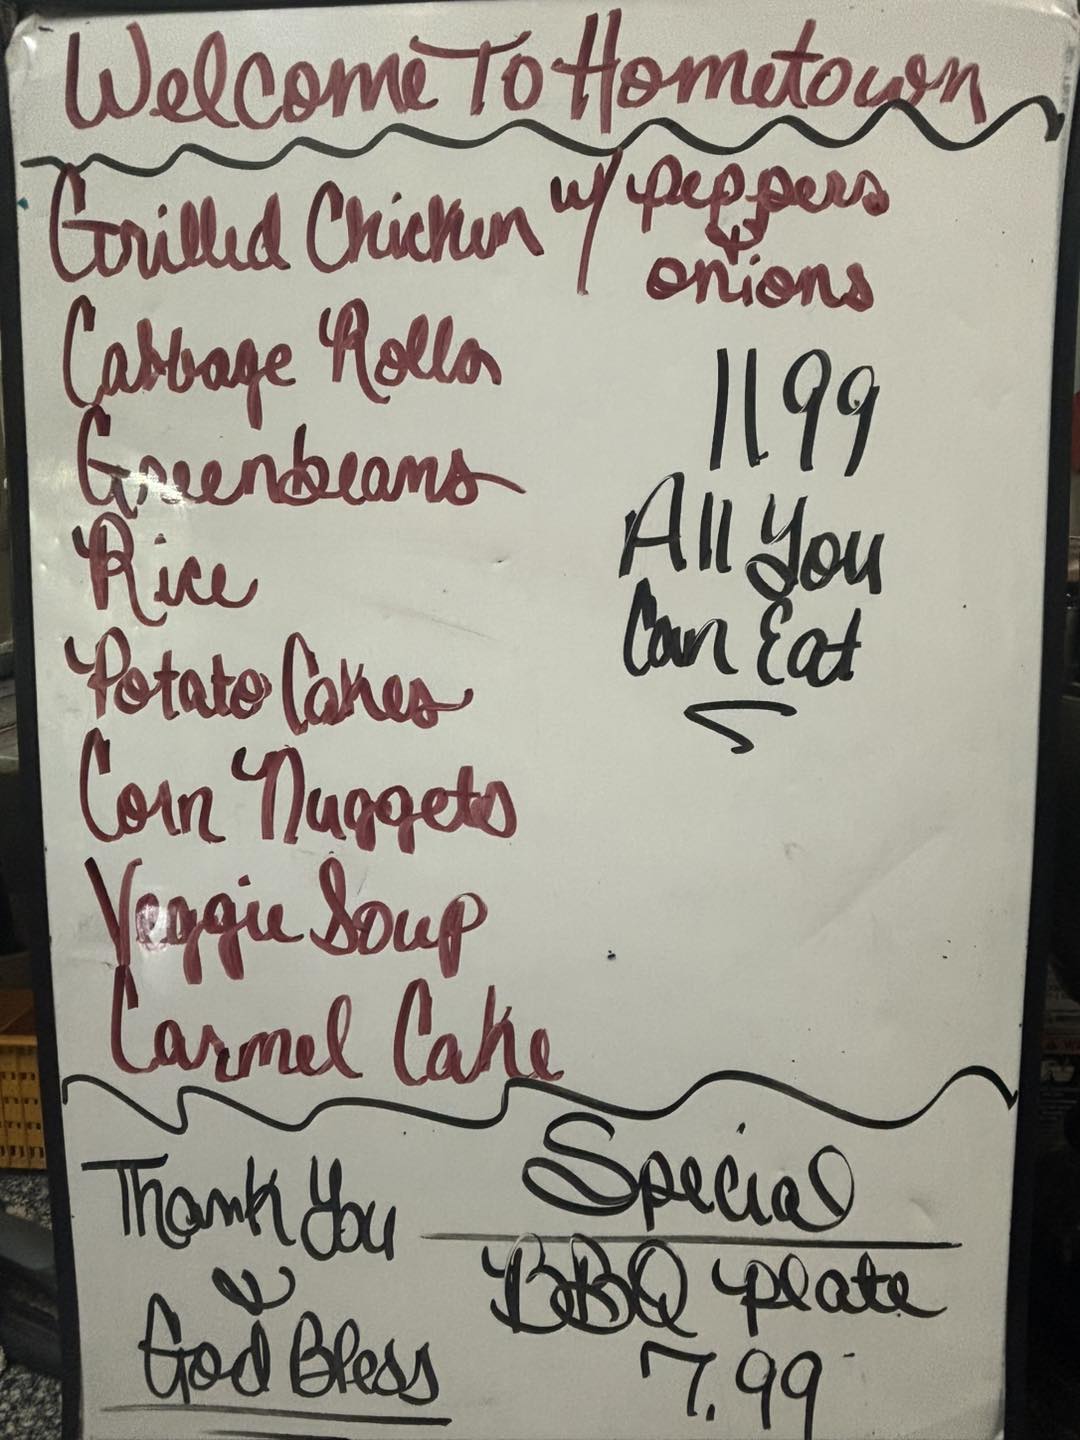 Welcome To Hometown
Grilled Chicken w/ peppers
& onions
Cabbage Rolls
1199
Greenbeans
All You
Rice
Can Eat
Potato Cakes
Corn Nuggets
Veggie Soup
Carmel Cake
Thank You
God Bless
Special
BBQ plate
7.99